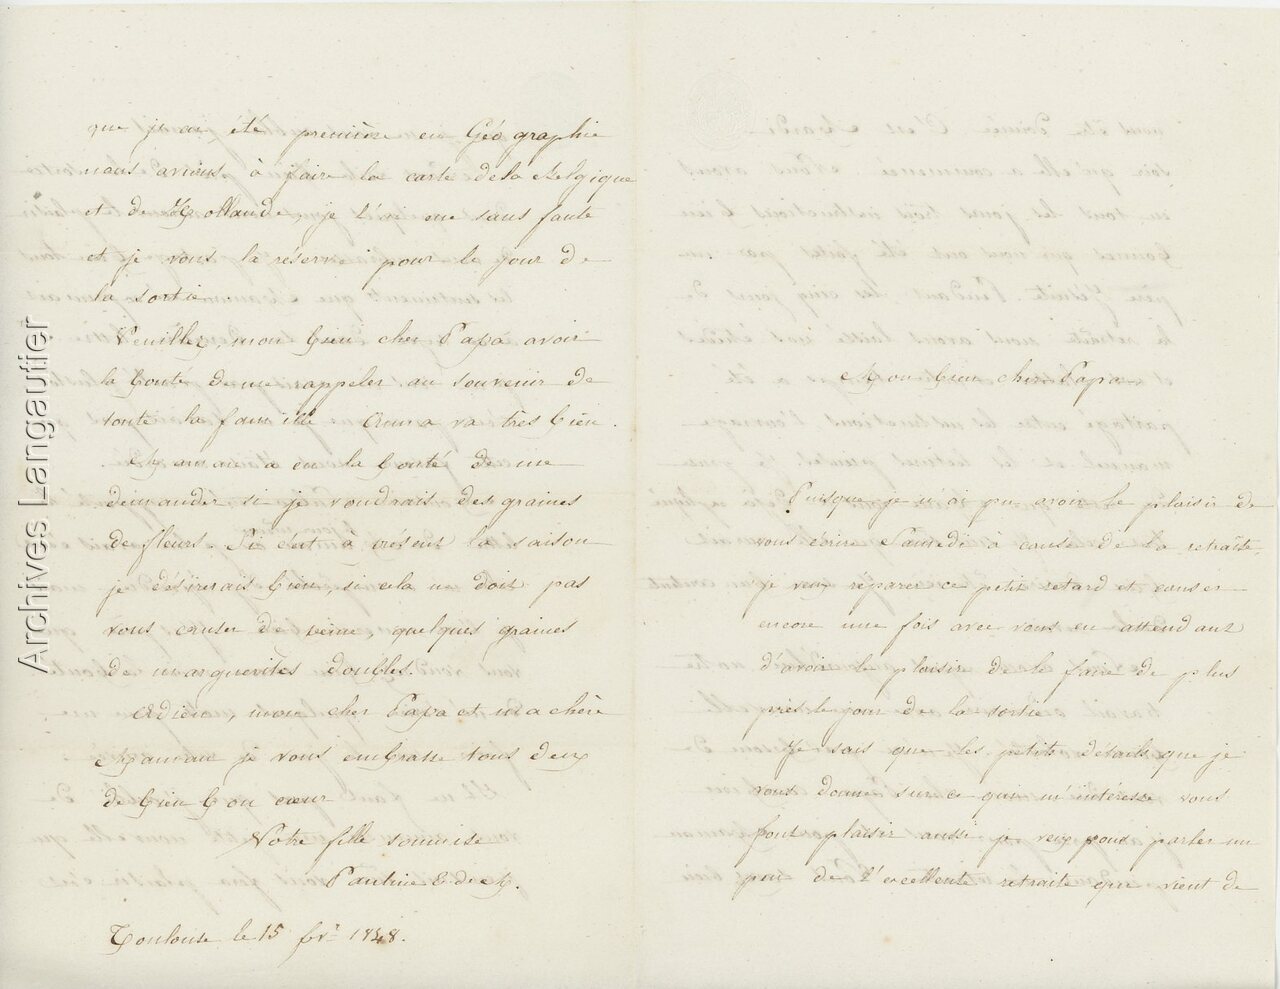 Mon bien cher Papa
Puisque je n'ai pu avoir le plaisir de
vous écrire Samedi à cause de la retraite,
je veux réparer ce petit retard et causer
encore une fois avec vous en attendant
d'avoir le plaisir de le faire de plus
près le jour de la sortie
Je sais que les petits détails que je
vous donne sur ce qui m'intéresse vous
font plaisir aussi je veux vous parler un
peu de l'excellente retraite que vient de
que j'ai été première en Géographie
nous avions à faire la carte de la Belgique
et de Hollande, je l'ai eue sans faute
et je vous la réserve pour le jour de
la sortie.
Veuillez, mon bien cher Papa avoir
la bonté de me rappeler au souvenir de
toute la famille Anna va très bien.
Maman a eu la bonté de me
demander si je voudrais des graines
de fleurs. Si c'est à présent la saison
je désirerais bien, si cela ne doit pas
vous causer de peine, quelques graines
de marguerites doubles.
Adieu, mon cher Papa et ma chère
Maman je vous embrasse tous deux
de bien bon cœur
Votre fille soumise
Pauline E de M.
Toulouse le 15 fvr 1848.
Archives Langautier